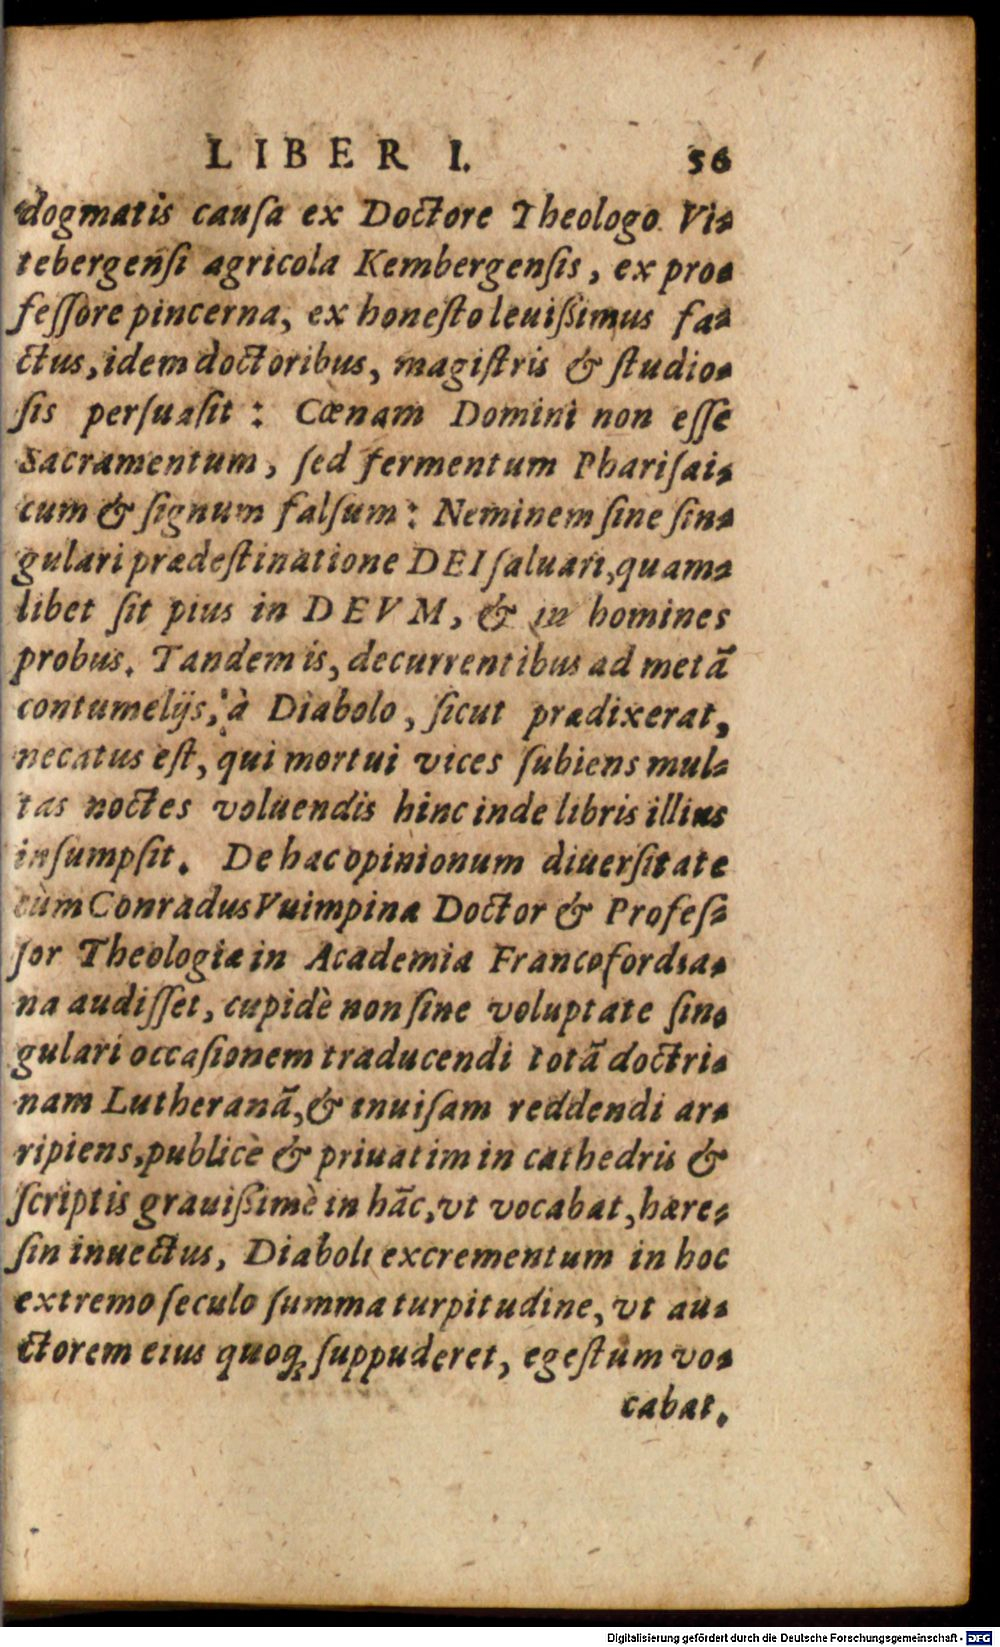 LIBER I. 56
dogmatis cauſa ex Doctore Theologo Vi-
tebergenſi agricola Kembergenſis, ex pro-
feſſore pincerna, ex honeſto leuiſsimus fa-
ctus, idem doctoribus, magiſtris & ſtudio-
ſis perſuaſit: Cœnam Domini non eſſe
Sacramentum, ſed fermentum Phariſai-
cum & ſignum falſum: Neminem ſine ſin-
gulari prædeſtinatione DEI ſaluari, quam-
libet ſit pius in DEVM, & in homines
probus. Tandem is, decurrentibus ad metã
contumelijs, à Diabolo, ſicut prædixerat,
necatus eſt, qui mortui vices ſubiens mul-
tas noctes voluendis hinc inde libris illius
inſumpſit. De hac opinionum diuerſitate
cùm Conradus Vuimpina Doctor & Profeſ-
ſor Theologiæ in Academia Francofordia-
na audiſſet, cupidè non ſine voluptate ſin-
gulari occaſionem traducendi totã doctri-
nam Lutheranã, & inuiſam reddendi ar-
ripiens, publicè & priuatim in cathedris &
ſcriptis grauiſsimè in hãc, vt vocabat, hære-
ſin inuectus, Diaboli excrementum in hoc
extremo ſeculo ſumma turpitudine, vt au-
ctorem eius quoq; ſuppuderet, egeſtum vo-
cabat.
Digitalisierung gefördert durch die Deutsche Forschungsgemeinschaft - DFG